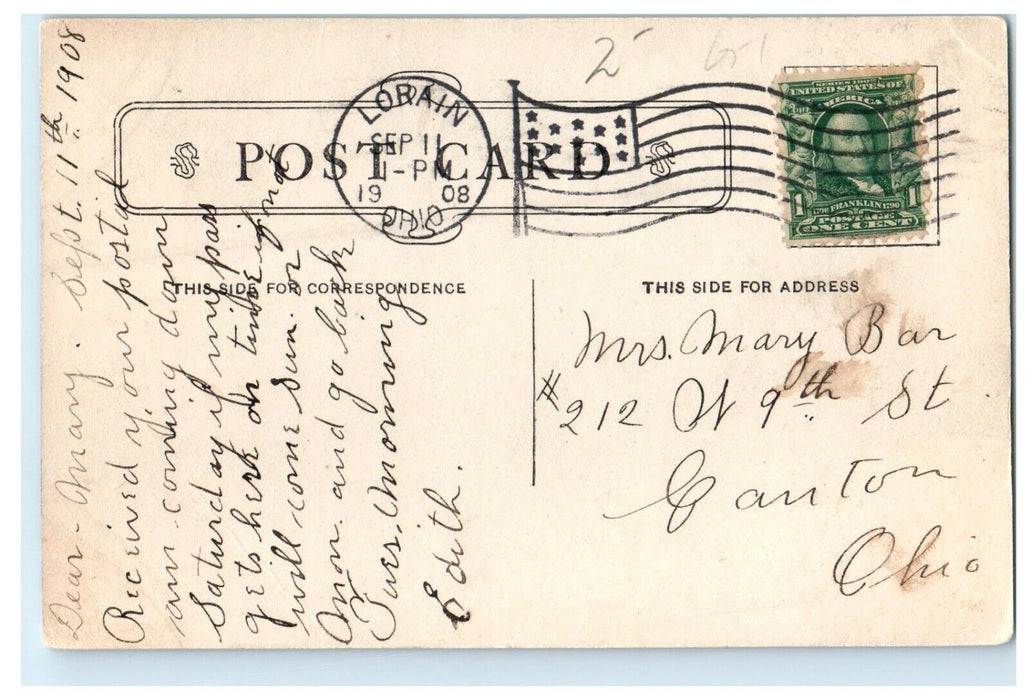 2
LORAIN
SEP 11
1-PM
19 08
OHIO
POST CARD
SERIES 1902
UNITED STATES OF
AMERICA
1 1790 FRANKLIN 1790 1
POSTAGE
ONE CENT
THIS SIDE FOR CORRESPONDENCE
THIS SIDE FOR ADDRESS
Sept. 11th 1908
Dear - Mary.
Received your postal
am coming down
Saturday if my pass
gets here on time if not
will come Sun. or
Mon. and go back
Tues. Morning
Edith.
Mrs. Mary Bar
#212 W 9th St.
Canton
Ohio